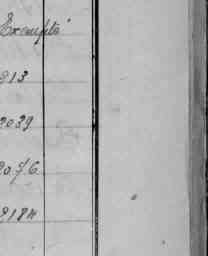 Exempts
913
2039
2076
9184